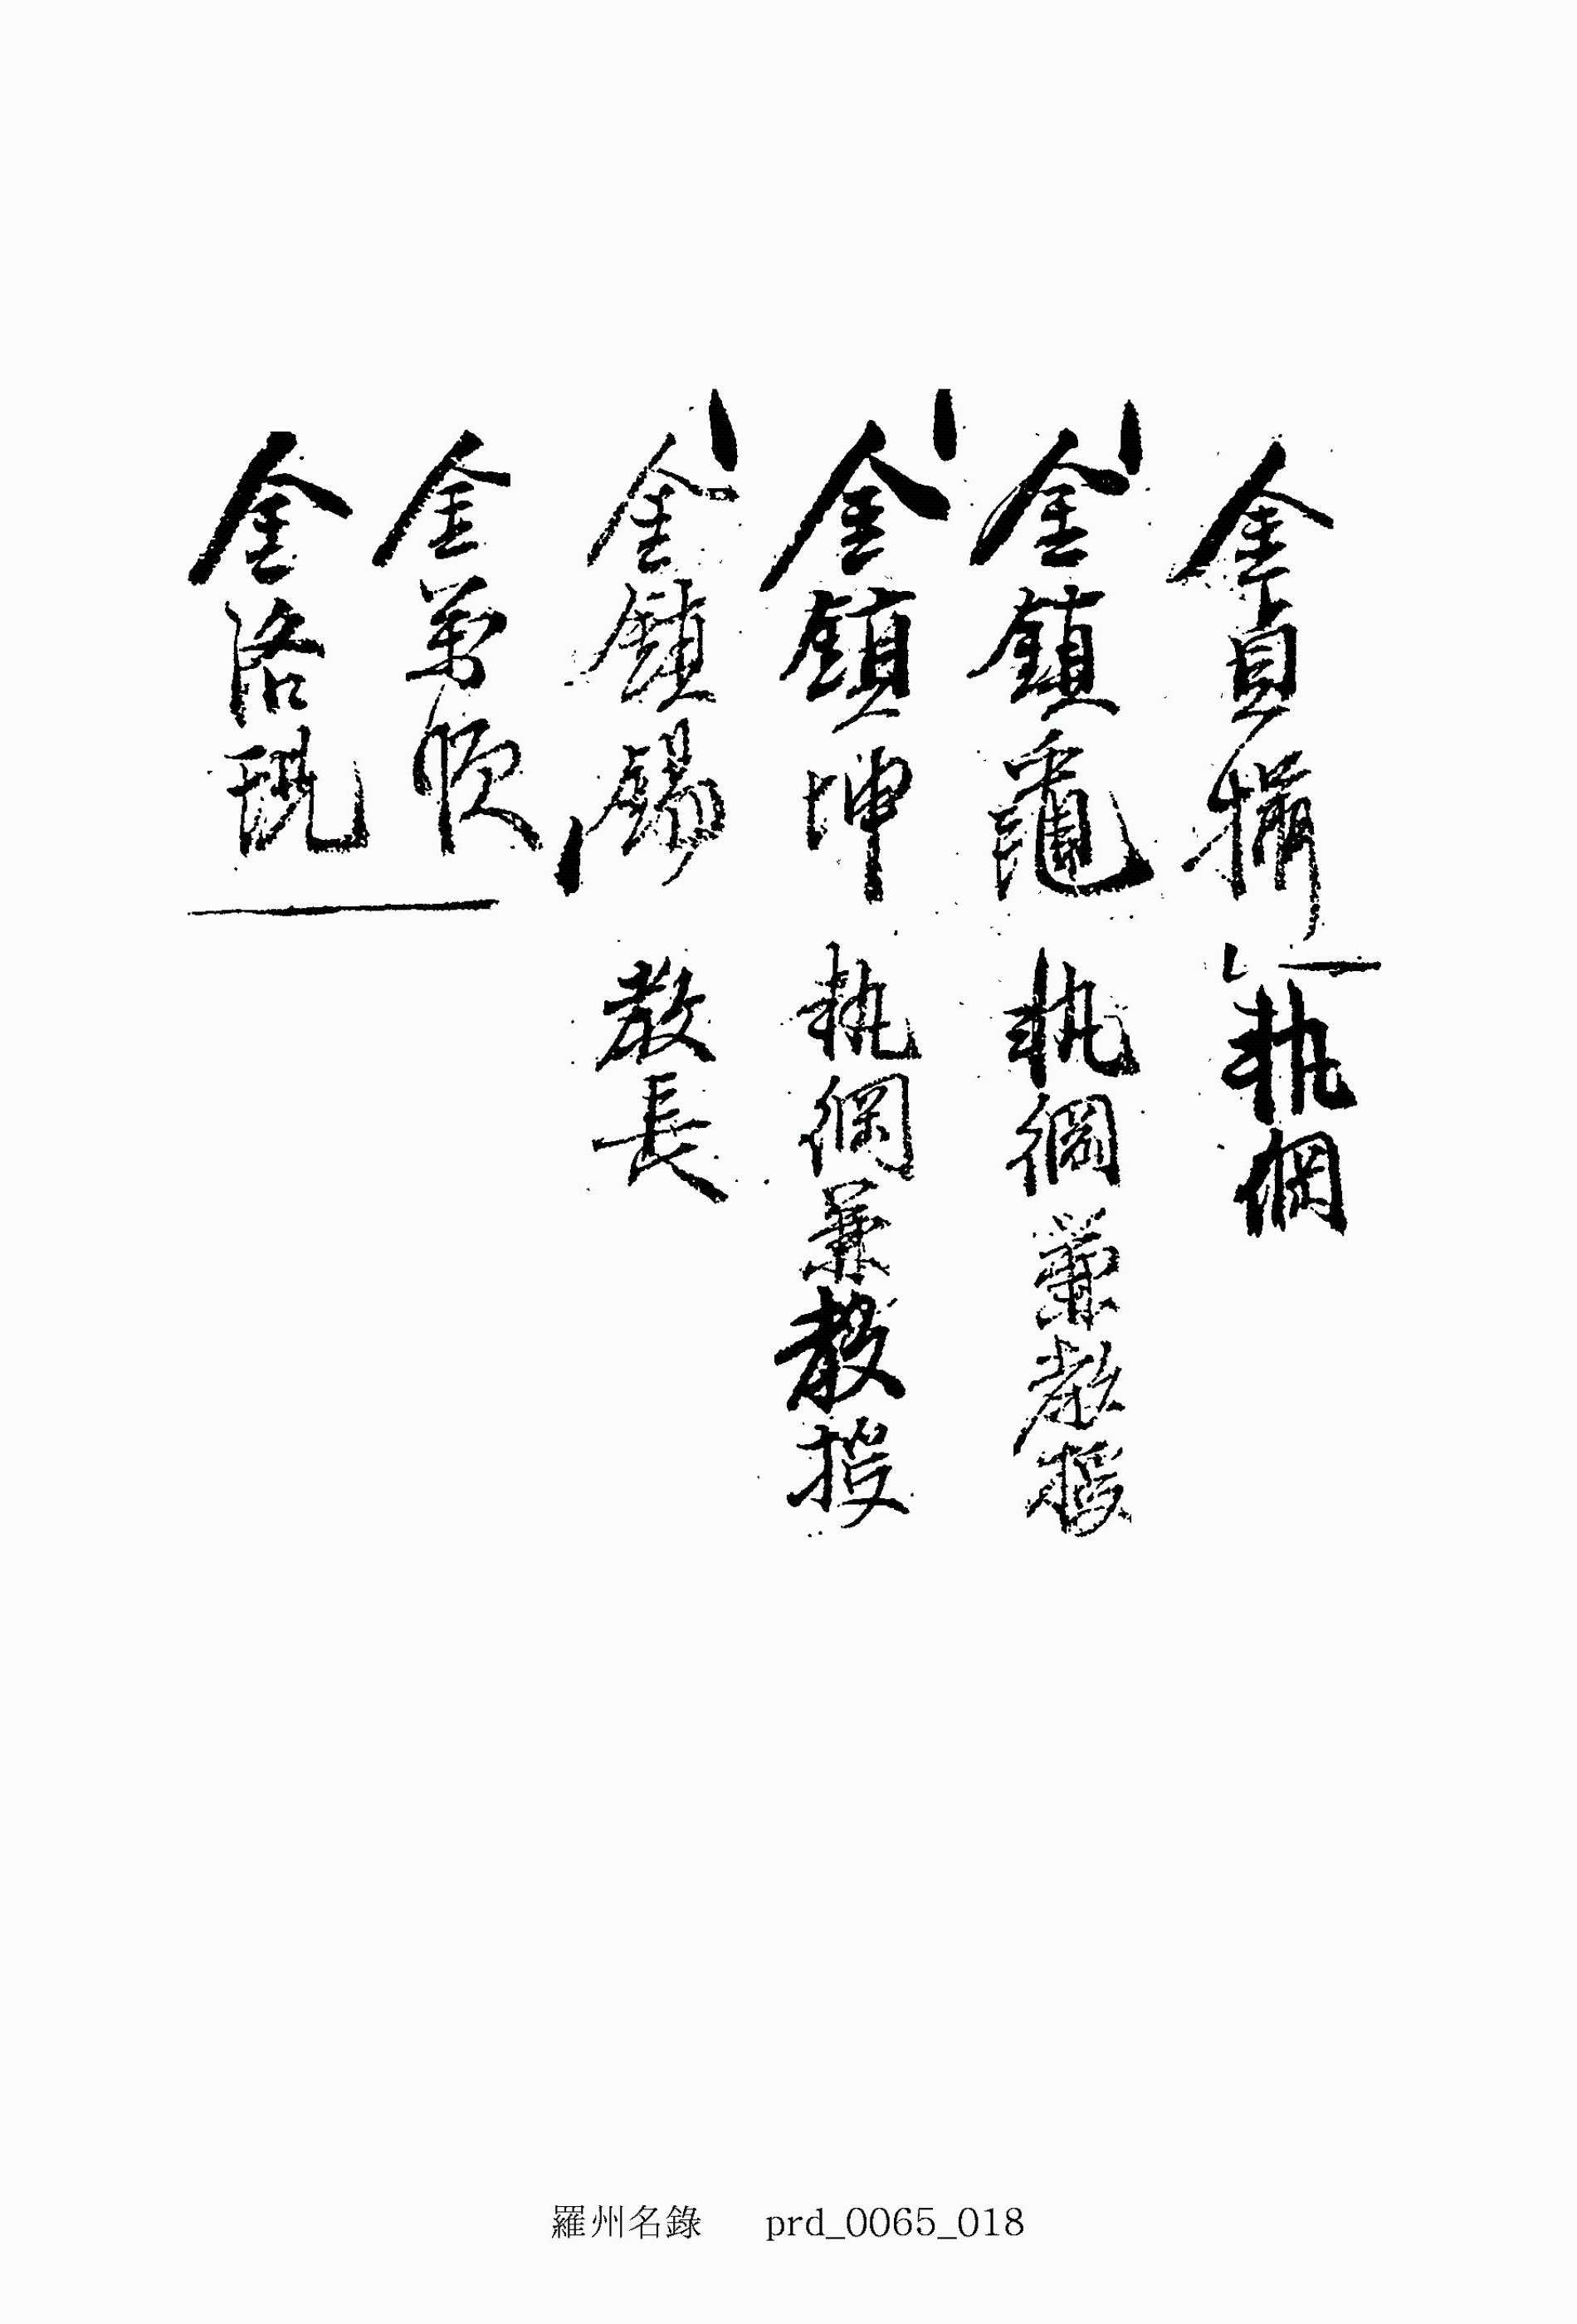 金貞 執綱
金鎮 執綱兼教授
金鎮坤 執綱兼教授
金鎮錫 教長
金
金洛現
羅州名錄 prd_0065_018